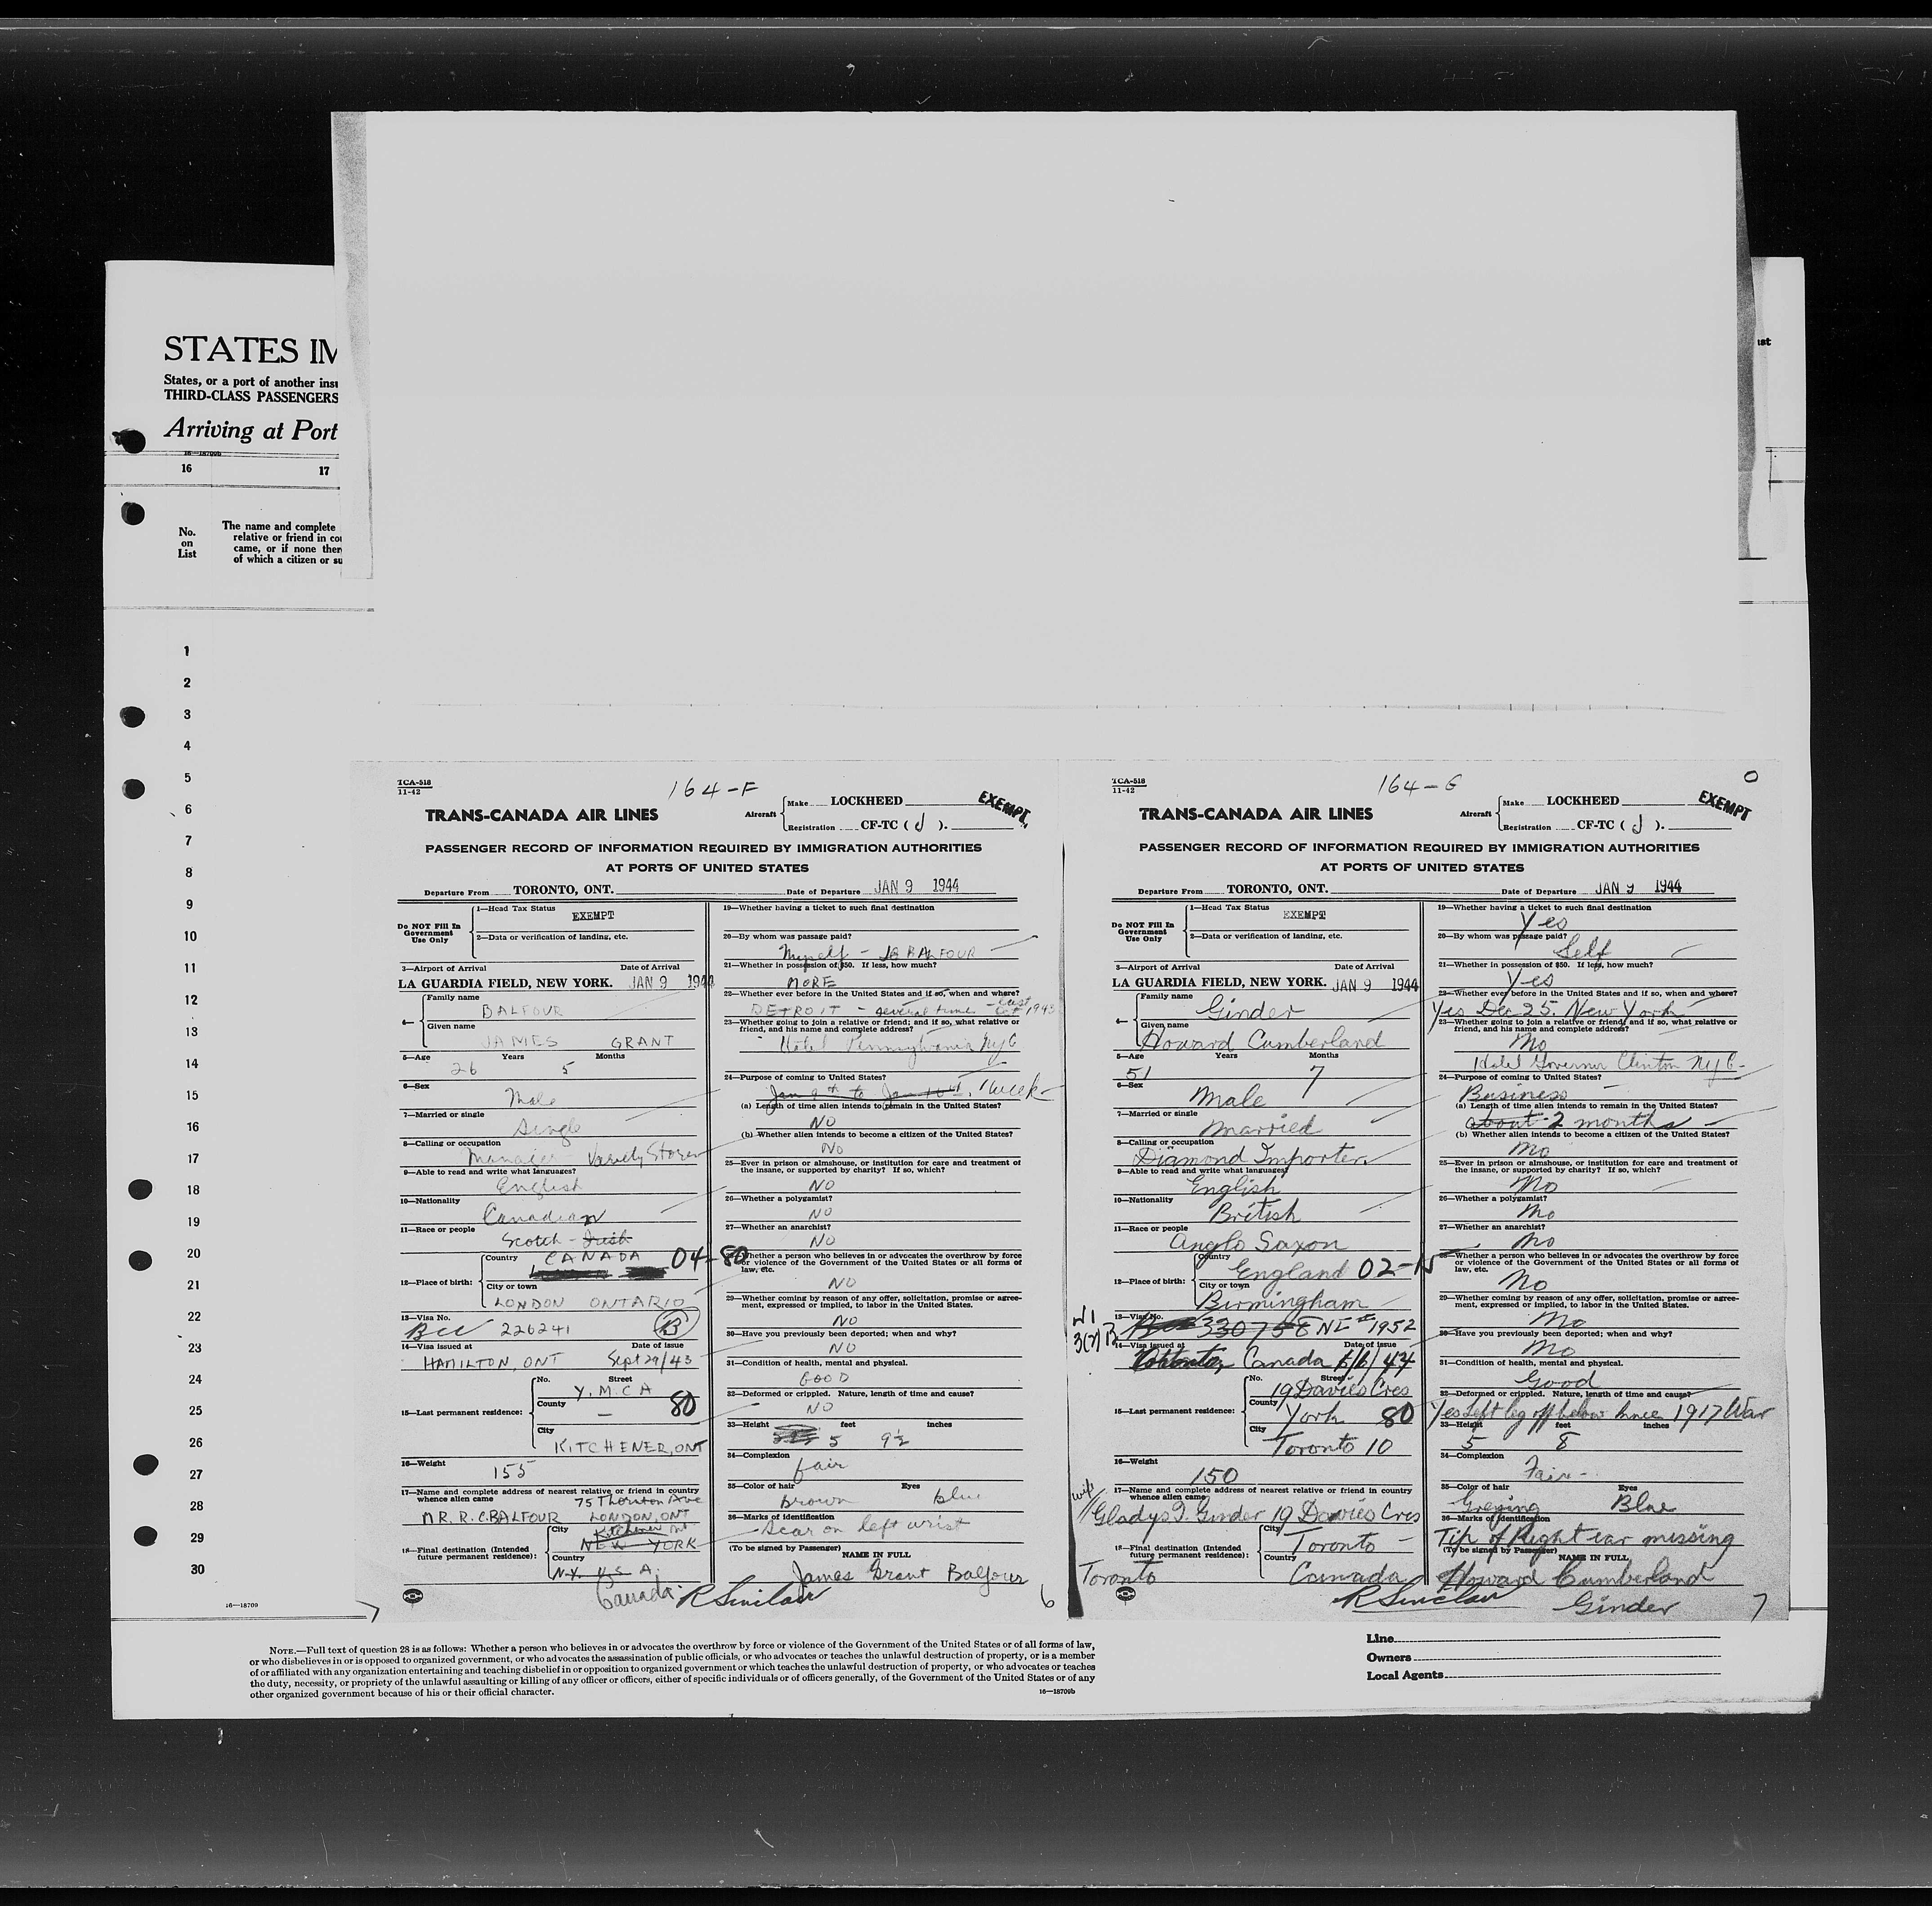 STATES IM
States, or a port of another insu
THIRD-CLASS PASSENGERS
Arriving at Port
16—18709b
16 17
No. on List
The name and complete
relative or friend in cou
came, or if none ther
of which a citizen or su
1
2
3
4
5
6
7
8
9
10
11
12
13
14
15
16
17
18
19
20
21
22
23
24
25
26
27
28
29
30
16—18709
TCA-518
11-42
164-F
TRANS-CANADA AIR LINES
Aircraft Make LOCKHEED
Registration CF-TC ( J ).
EXEMPT
PASSENGER RECORD OF INFORMATION REQUIRED BY IMMIGRATION AUTHORITIES
AT PORTS OF UNITED STATES
Departure From TORONTO, ONT. Date of Departure JAN 9 1944
Do NOT Fill In Government Use Only
1—Head Tax Status EXEMPT
2—Data or verification of landing, etc.
3—Airport of Arrival Date of Arrival
LA GUARDIA FIELD, NEW YORK. JAN 9 1944
4— Family name
BALFOUR
Given name
JAMES GRANT
5—Age Years Months
26 5
6—Sex
Male
7—Married or single
Single
8—Calling or occupation
Manager - Variety Store
9—Able to read and write what languages?
English
10—Nationality
Canadian
11—Race or people
Scotch - Irish
12—Place of birth: Country CANADA 04-80
City or town
LONDON ONTARIO
13—Visa No.
BCC 226241 B
14—Visa issued at Date of issue
HAMILTON, ONT Sept 29/43
15—Last permanent residence: No. Street
Y.M.C.A
County — 80
City
KITCHENER, ONT
16—Weight
155
17—Name and complete address of nearest relative or friend in country
whence alien came 75 Thornton Ave
MR. R. C. BALFOUR LONDON, ONT
18—Final destination (Intended future permanent residence): City Kitchener Ont
NEW YORK
Country
N.Y. U.S.A.
Canada
R Sinclair
19—Whether having a ticket to such final destination
20—By whom was passage paid?
Myself - JG BALFOUR
21—Whether in possession of $50. If less, how much?
MORE
22—Whether ever before in the United States and if so, when and where?
DETROIT - several times - last Oct 1943
23—Whether going to join a relative or friend; and if so, what relative or
friend, and his name and complete address?
Hotel Pennsylvania NYC
24—Purpose of coming to United States?
Jan 9th to Jan 16th. 1 week
(a) Length of time alien intends to remain in the United States?
NO
(b) Whether alien intends to become a citizen of the United States?
No
25—Ever in prison or almshouse, or institution for care and treatment of
the insane, or supported by charity? If so, which?
NO
26—Whether a polygamist?
NO
27—Whether an anarchist?
NO
28—Whether a person who believes in or advocates the overthrow by force
or violence of the Government of the United States or all forms of
law, etc.
NO
29—Whether coming by reason of any offer, solicitation, promise or agree-
ment, expressed or implied, to labor in the United States.
NO
30—Have you previously been deported; when and why?
NO
31—Condition of health, mental and physical.
GOOD
32—Deformed or crippled. Nature, length of time and cause?
NO
33—Height feet inches
5 9½
34—Complexion
fair
35—Color of hair Eyes
brown blue
36—Marks of identification
Scar on left wrist
(To be signed by Passenger) NAME IN FULL
James Grant Balfour
6
TCA-518
11-42
164-G
O
TRANS-CANADA AIR LINES
Aircraft Make LOCKHEED
Registration CF-TC ( J ).
EXEMPT
PASSENGER RECORD OF INFORMATION REQUIRED BY IMMIGRATION AUTHORITIES
AT PORTS OF UNITED STATES
Departure From TORONTO, ONT. Date of Departure JAN 9 1944
Do NOT Fill In Government Use Only
1—Head Tax Status EXEMPT
2—Data or verification of landing, etc.
3—Airport of Arrival Date of Arrival
LA GUARDIA FIELD, NEW YORK. JAN 9 1944
4— Family name
Ginder
Given name
Howard Cumberland
5—Age Years Months
51 7
6—Sex
Male
7—Married or single
Married
8—Calling or occupation
Diamond Importer
9—Able to read and write what languages?
English
10—Nationality
British
11—Race or people
Anglo Saxon
12—Place of birth: Country
England 02-15
City or town
Birmingham
13—Visa No.
330758 NI # 1952
3(2) B
14—Visa issued at Date of issue
Toronto, Canada 6/6/44
15—Last permanent residence: No. Street
19 Davies Cres
County
York 80
City
Toronto 10
16—Weight
150
17—Name and complete address of nearest relative or friend in country
whence alien came
wife
Gladys I. Ginder 19 Davies Cres
Toronto
18—Final destination (Intended future permanent residence): City
Toronto
Country
Canada
R Sinclair
19—Whether having a ticket to such final destination
Yes
20—By whom was passage paid?
Self
21—Whether in possession of $50. If less, how much?
Yes
22—Whether ever before in the United States and if so, when and where?
Yes Dec 25. New York
23—Whether going to join a relative or friend; and if so, what relative or
friend, and his name and complete address?
No
Hotel Governor Clinton NYC-
24—Purpose of coming to United States?
Business
(a) Length of time alien intends to remain in the United States?
about 2 months
(b) Whether alien intends to become a citizen of the United States?
No
25—Ever in prison or almshouse, or institution for care and treatment of
the insane, or supported by charity? If so, which?
No
26—Whether a polygamist?
No
27—Whether an anarchist?
No
28—Whether a person who believes in or advocates the overthrow by force
or violence of the Government of the United States or all forms of
law, etc.
No
29—Whether coming by reason of any offer, solicitation, promise or agree-
ment, expressed or implied, to labor in the United States.
No
30—Have you previously been deported; when and why?
No
31—Condition of health, mental and physical.
Good
32—Deformed or crippled. Nature, length of time and cause?
Yes Left leg off below knee 1917 War
33—Height feet inches
5 8
34—Complexion
Fair-
35—Color of hair Eyes
Greying Blue
36—Marks of identification
Tip of Right ear missing
(To be signed by Passenger) NAME IN FULL
Howard Cumberland
Ginder
7
NOTE.—Full text of question 28 is as follows: Whether a person who believes in or advocates the overthrow by force or violence of the Government of the United States or of all forms of law,
or who disbelieves in or is opposed to organized government, or who advocates the assassination of public officials, or who advocates or teaches the unlawful destruction of property, or is a member
of or affiliated with any organization entertaining and teaching disbelief in or opposition to organized government or which teaches the unlawful destruction of property, or who advocates or teaches
the duty, necessity, or propriety of the unlawful assaulting or killing of any officer or officers, either of specific individuals or of officers generally, of the Government of the United States or of any
other organized government because of his or their official character.
16—18709b
Line
Owners
Local Agents